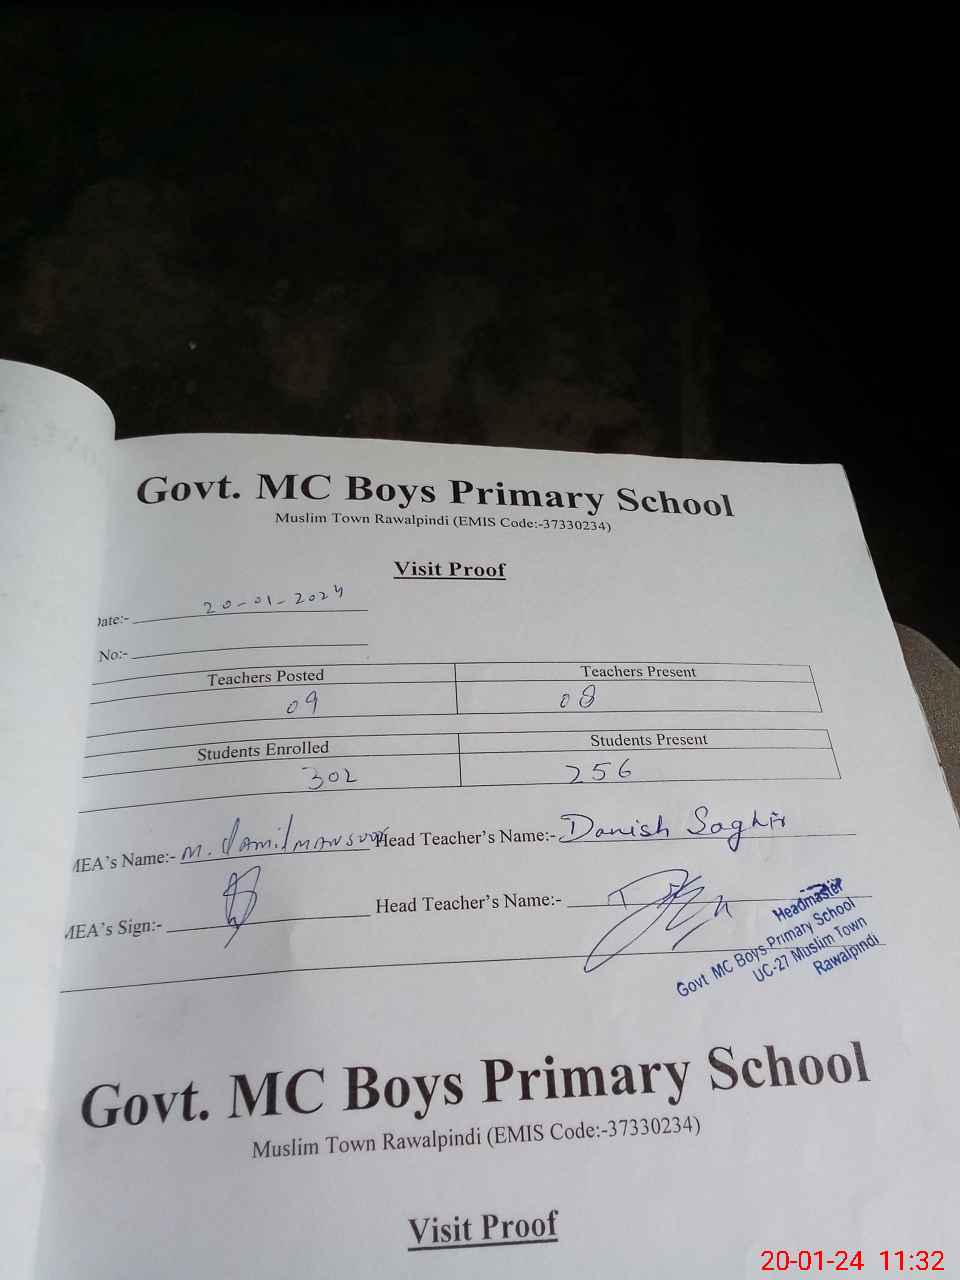 Govt. MC Boys Primary School
Muslim Town Rawalpindi (EMIS Code:-37330234)
Visit Proof
Date:- 20-01-2024
No:-
Teachers Posted Teachers Present
09 08
Students Enrolled Students Present
302 256
MEA's Name:- M. Jamil Mansoor Head Teacher's Name:- Danish Saghir
MEA's Sign:- Head Teacher's Name:-
Headmaster
Govt MC Boys Primary School
UC-27 Muslim Town
Rawalpindi
Govt. MC Boys Primary School
Muslim Town Rawalpindi (EMIS Code:-37330234)
Visit Proof
20-01-24 11:32